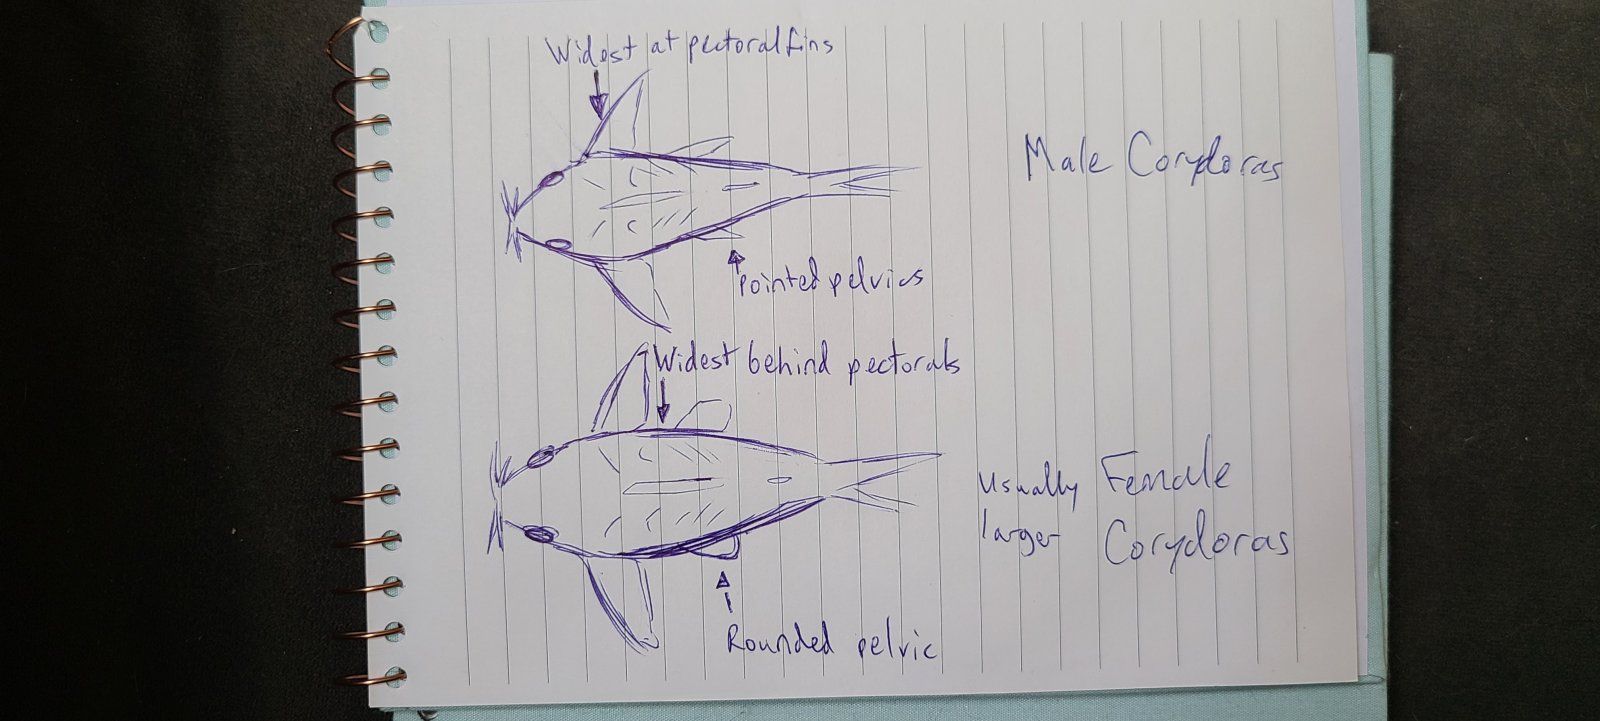 Widest at pectoral fins
Male Corydoras
Pointed pelvics
Widest behind pectorals
Usually
larger
Female
Corydoras
Rounded pelvic